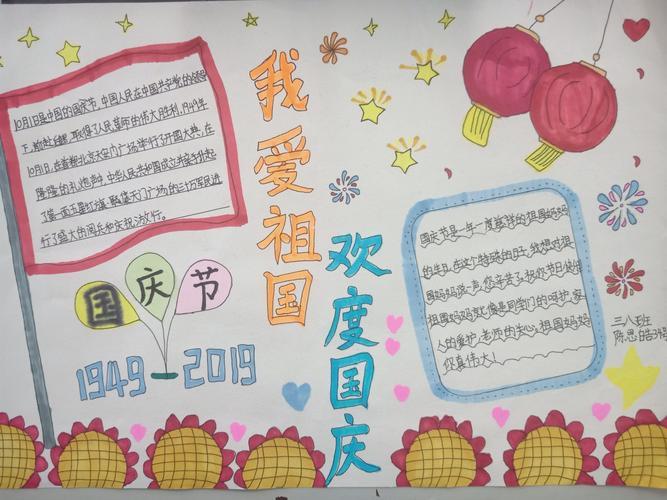 10月1日是中国的国庆节,中国人民在中国共产党的领导
下,前赴后继,取得了人民革命的伟大胜利,1949年
10月1日,在首都北京天安门广场举行了开国大典,在
隆隆的礼炮声中,中华人民共和国成立
了第一面五星红旗,
行了盛大的阅兵和庆祝游行。
我爱祖国
欢度国庆
国庆节
1949 2019
国庆节是一年一度慈祥的祖国妈妈
的生日,在这个特殊的日子,我想对祖
国妈妈说一声,您辛苦了,祝你节日快
祖国妈妈就像是同学们的呵护,家
人的爱护,老师的关心,祖国妈妈
你真伟大!
三八班
陈思皓